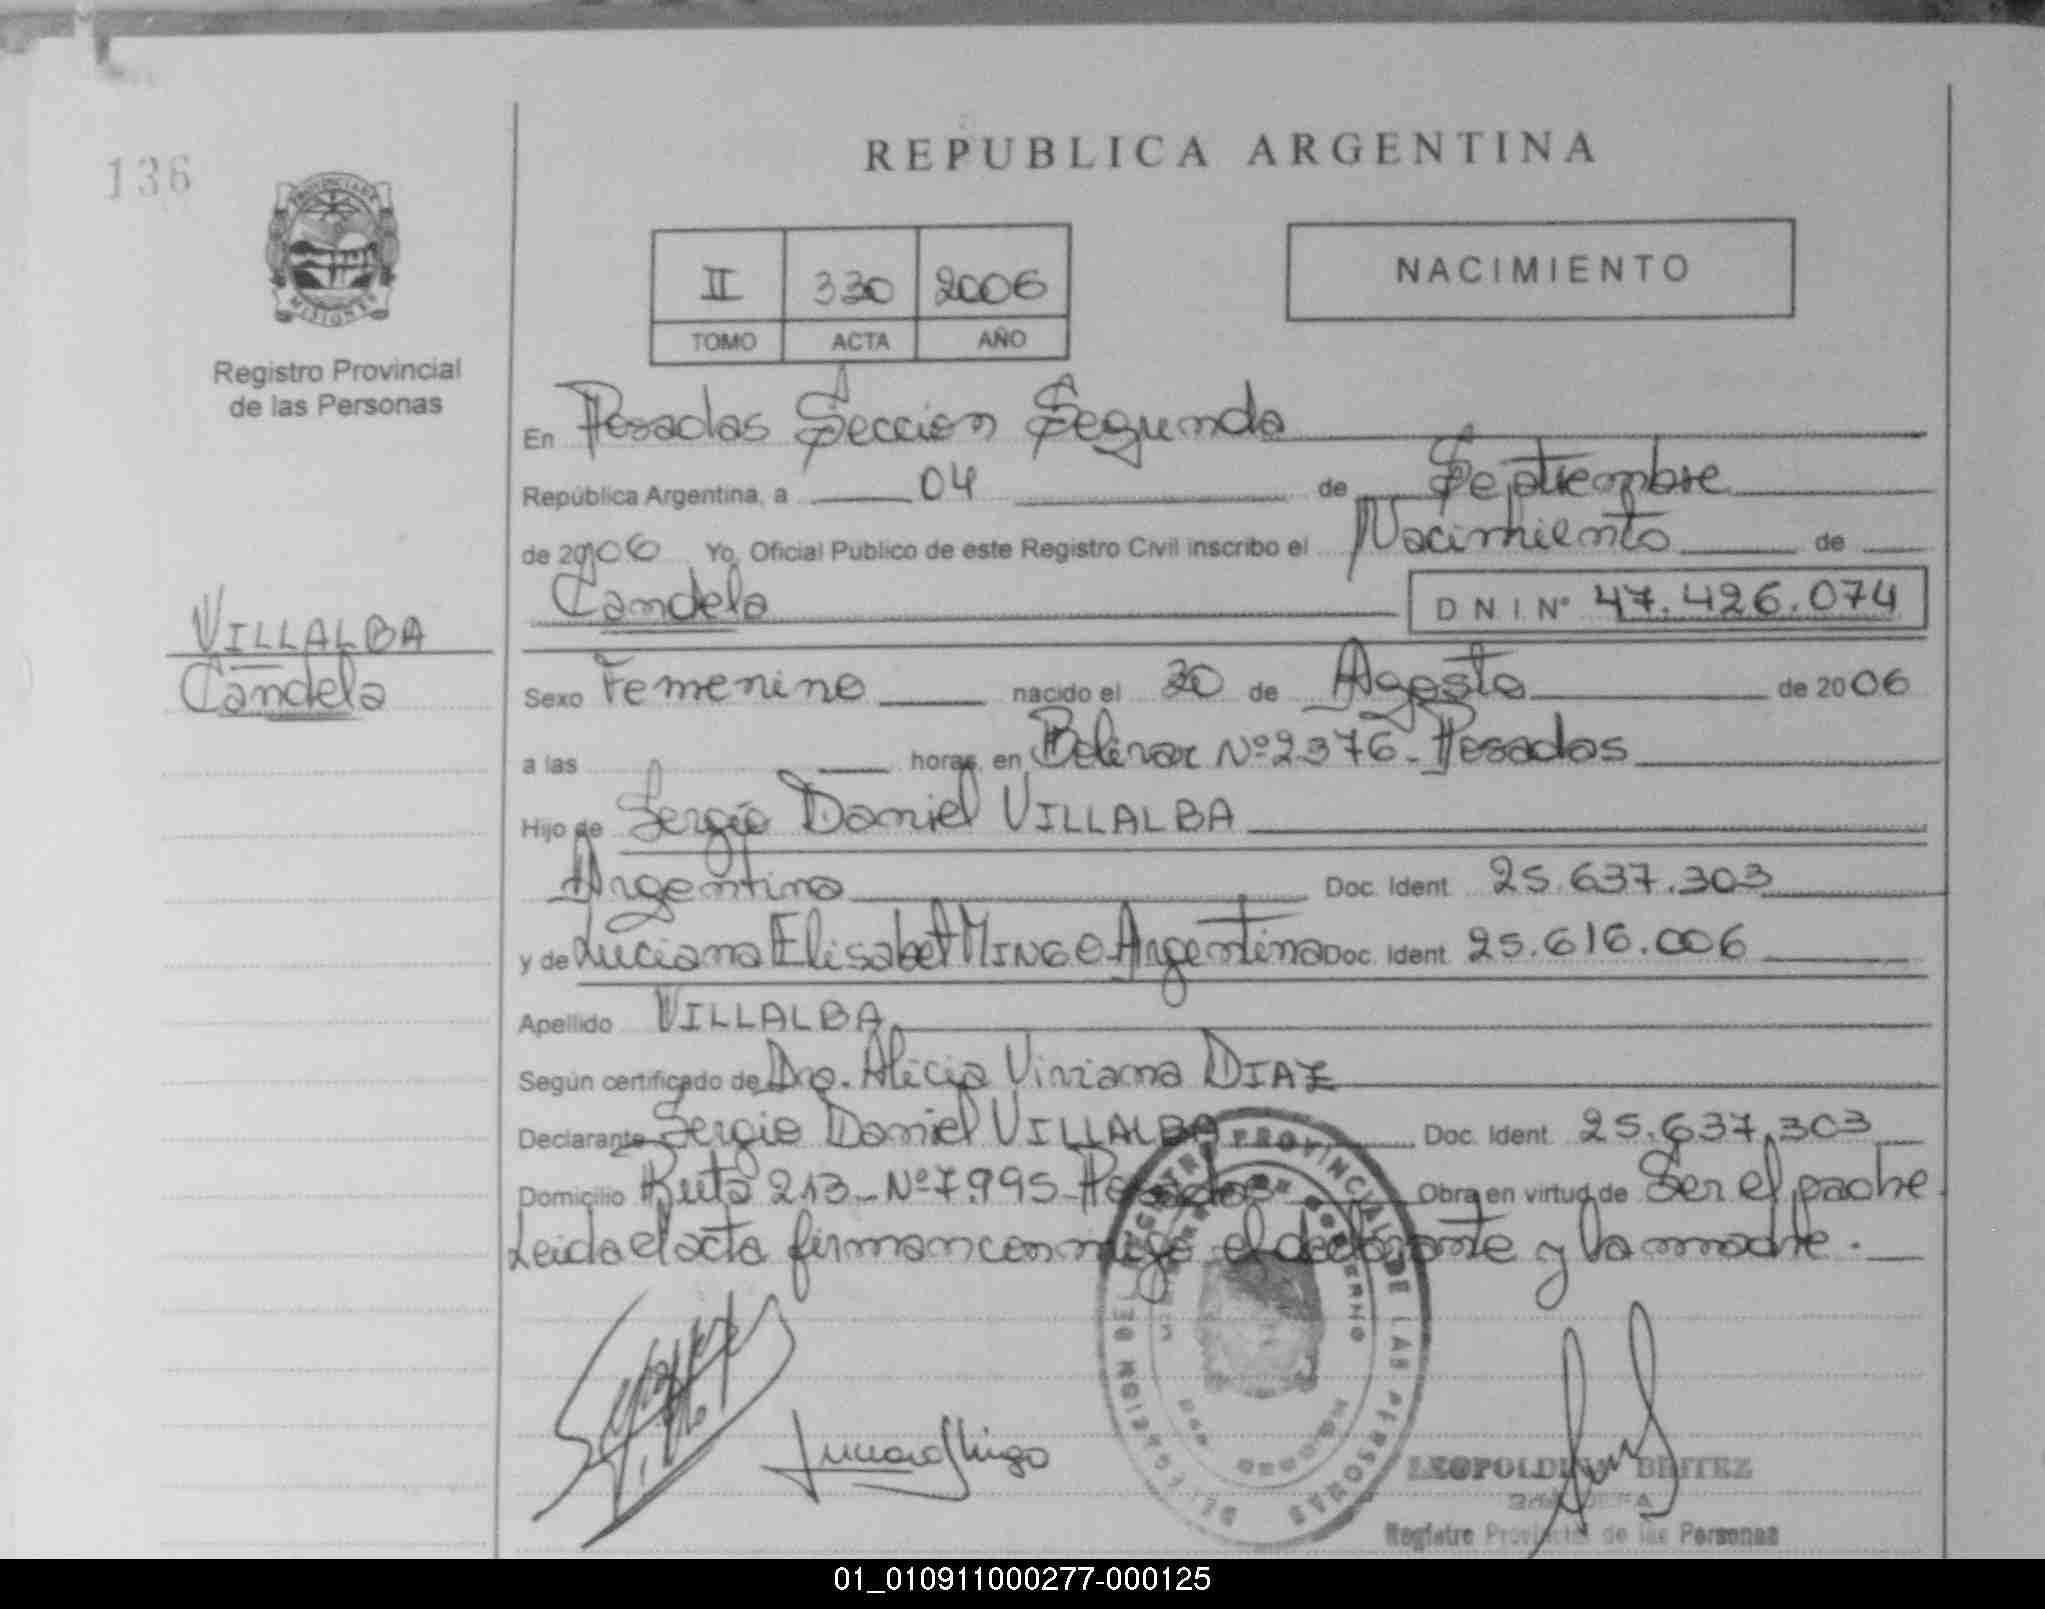 136
REPUBLICA ARGENTINA
PROVINCIA DE
MISIONES
Registro Provincial
de las Personas
II 330 2006
TOMO ACTA AÑO
NACIMIENTO
En Posadas Seccion Segunda
República Argentina, a 04 de Septiembre
de 2006 Yo, Oficial Publico de este Registro Civil inscribo el Nacimiento de
Candela D N I Nº 47.426.074
VILLALBA
Candela
Sexo Femenino nacido el 30 de Agosto de 2006
a las horas, en Bolivar Nº 2376 - Posadas
Hijo de Sergio Daniel VILLALBA
Argentino Doc. Ident 25.637.303
y de Luciana Elisabet MINGO Argentina Doc. Ident 25.616.006
Apellido VILLALBA
Según certificado de Dra. Alicia Viviana DIAZ
Declarante Sergio Daniel VILLALBA Doc. Ident 25.637.303
Domicilio Ruta 213 - Nº 7.995 - Posadas Obra en virtud de Ser el padre
Leida el acta firman conmigo el declarante y la madre.
REGISTRO PROVINCIAL DE LAS PERSONAS
GOBIERNO
Registro Provincial de las Personas
01_010911000277-000125